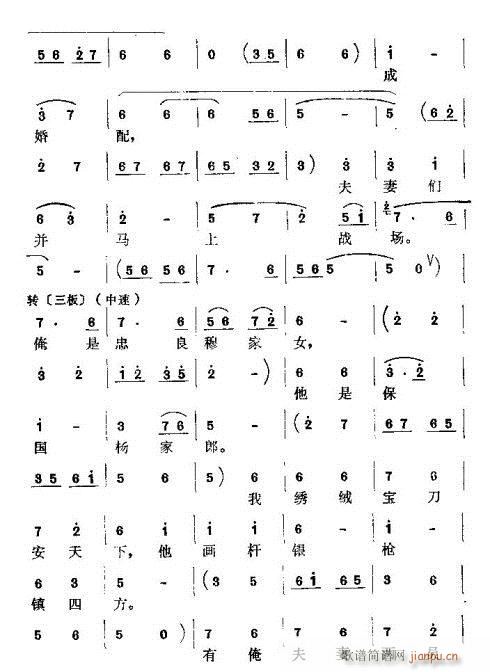 5 6 2̇ 7 | 6 6 | 0 (3 5 | 6 6) | i̇ -
成
3̇ 7 | 6 6 | 6 5 6 | 5 - | 5 (6 2̇
婚 配,
2̇ 7 | 6 7 6 7 | 6 5 3 2 | 3) 3̇ | 3̇ i̇
夫 妻 们
6 3̇ | 2̇ - | 5 7 | 2̇ 5 i̇ | 7 · 6
并 马 上 战 场。
5 - | (5 6 5 6 | 7 · 6 | 5 6 5 5 | 5 0) V
转〔三板〕(中速)
7 · 6 | 7 6 | 5 6 7 2̇ | 6 - | (2̇ 2̇
俺 是 忠 良 穆 家 女,
3̇ 2̇ | i̇ 2̇ 3 5 | 2̇ -) | 6 6 | 3̇ · 2̇
他 是 保
i̇ - | 3 7 6 | 5 - | (2̇ 7 | 6 7 6 5
国 杨 家 郎。
3 5 6 i̇ | 5 6 | 5) 6 | 6 6 | 7 6
我 绣 绒 宝 刀
7 2̇ | 7 i̇ | 6 i̇ | 6 i̇ | 7 6
安 天 下, 他 画 杆 银 枪
6 3 | 5 - | (3 5 | 6 i̇ 6 5 | 3 5
镇 四 方。
5 6 | 5 6 | 5) 6 | 7 6 | 7 2̇
有 俺 夫 妻
歌谱简谱网
jianpu.cn